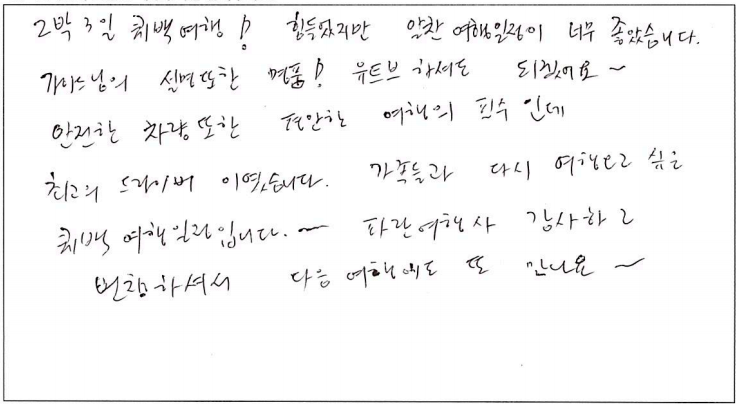 2박 3일 퀘백여행! 힘들었지만 알찬 여행일정이 너무 좋았습니다.
가이드님의 설명또한 명품! 유트브 하셔도 되겠어요~
안전한 차량또한 편안한 여행의 필수 인데
최고의 드라이버 이였습니다. 가족들과 다시 여행오고 싶은
퀘백 여행일정입니다.~ 파란여행사 감사하고
번창하셔서 다음 여행에도 또 만나요~